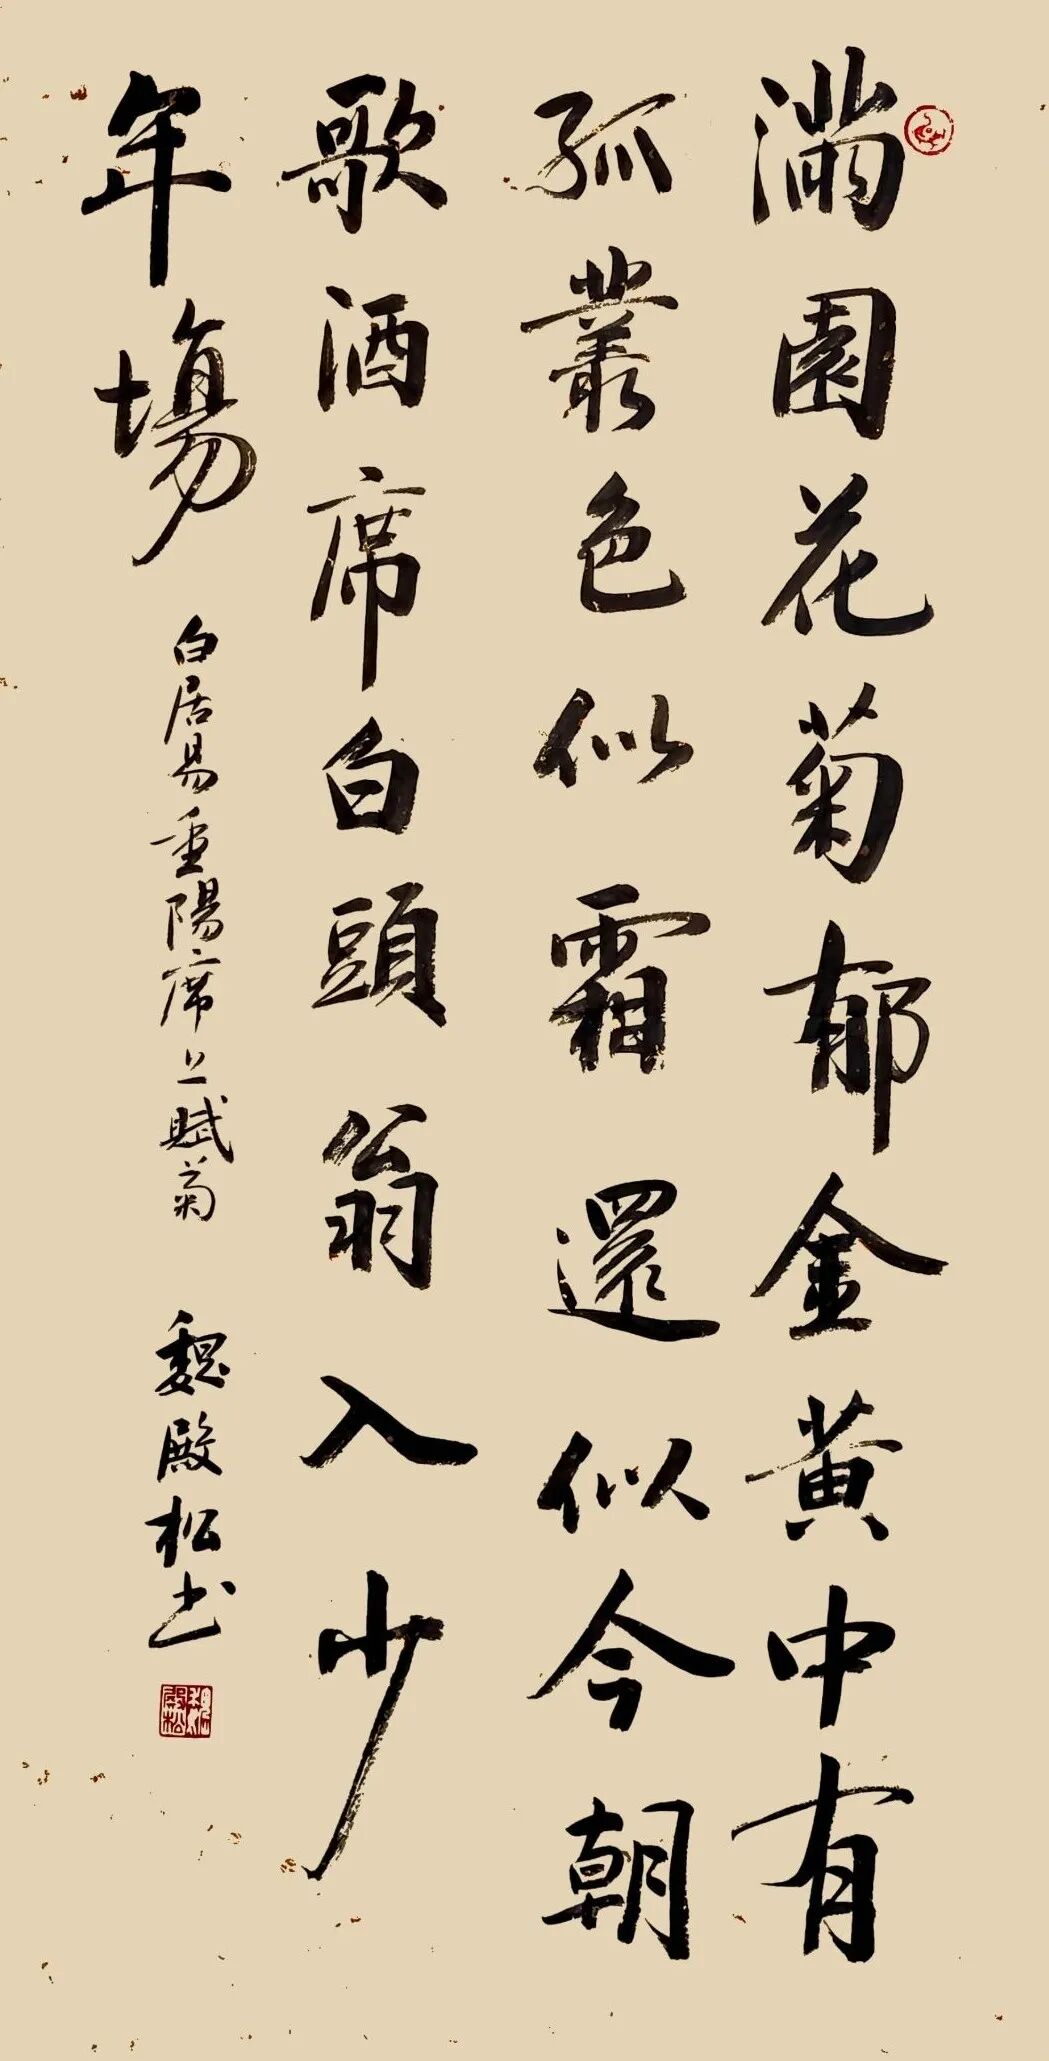 滿園花菊郁金黃中有
孤叢色似霜還似今朝
歌酒席白頭翁入少
年場
白居易重陽席上賦菊
魏殿松书
魏殿松